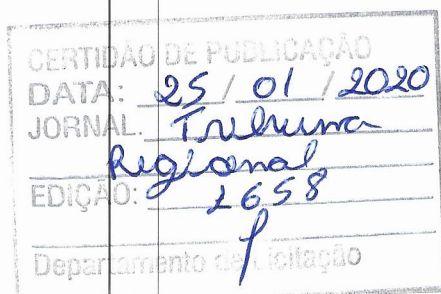 CERTIDÃO DE PUBLICAÇÃO
DATA: 25 / 01 / 2020
JORNAL: Tribuna
Regional
EDIÇÃO: 1658
Departamento de Licitação